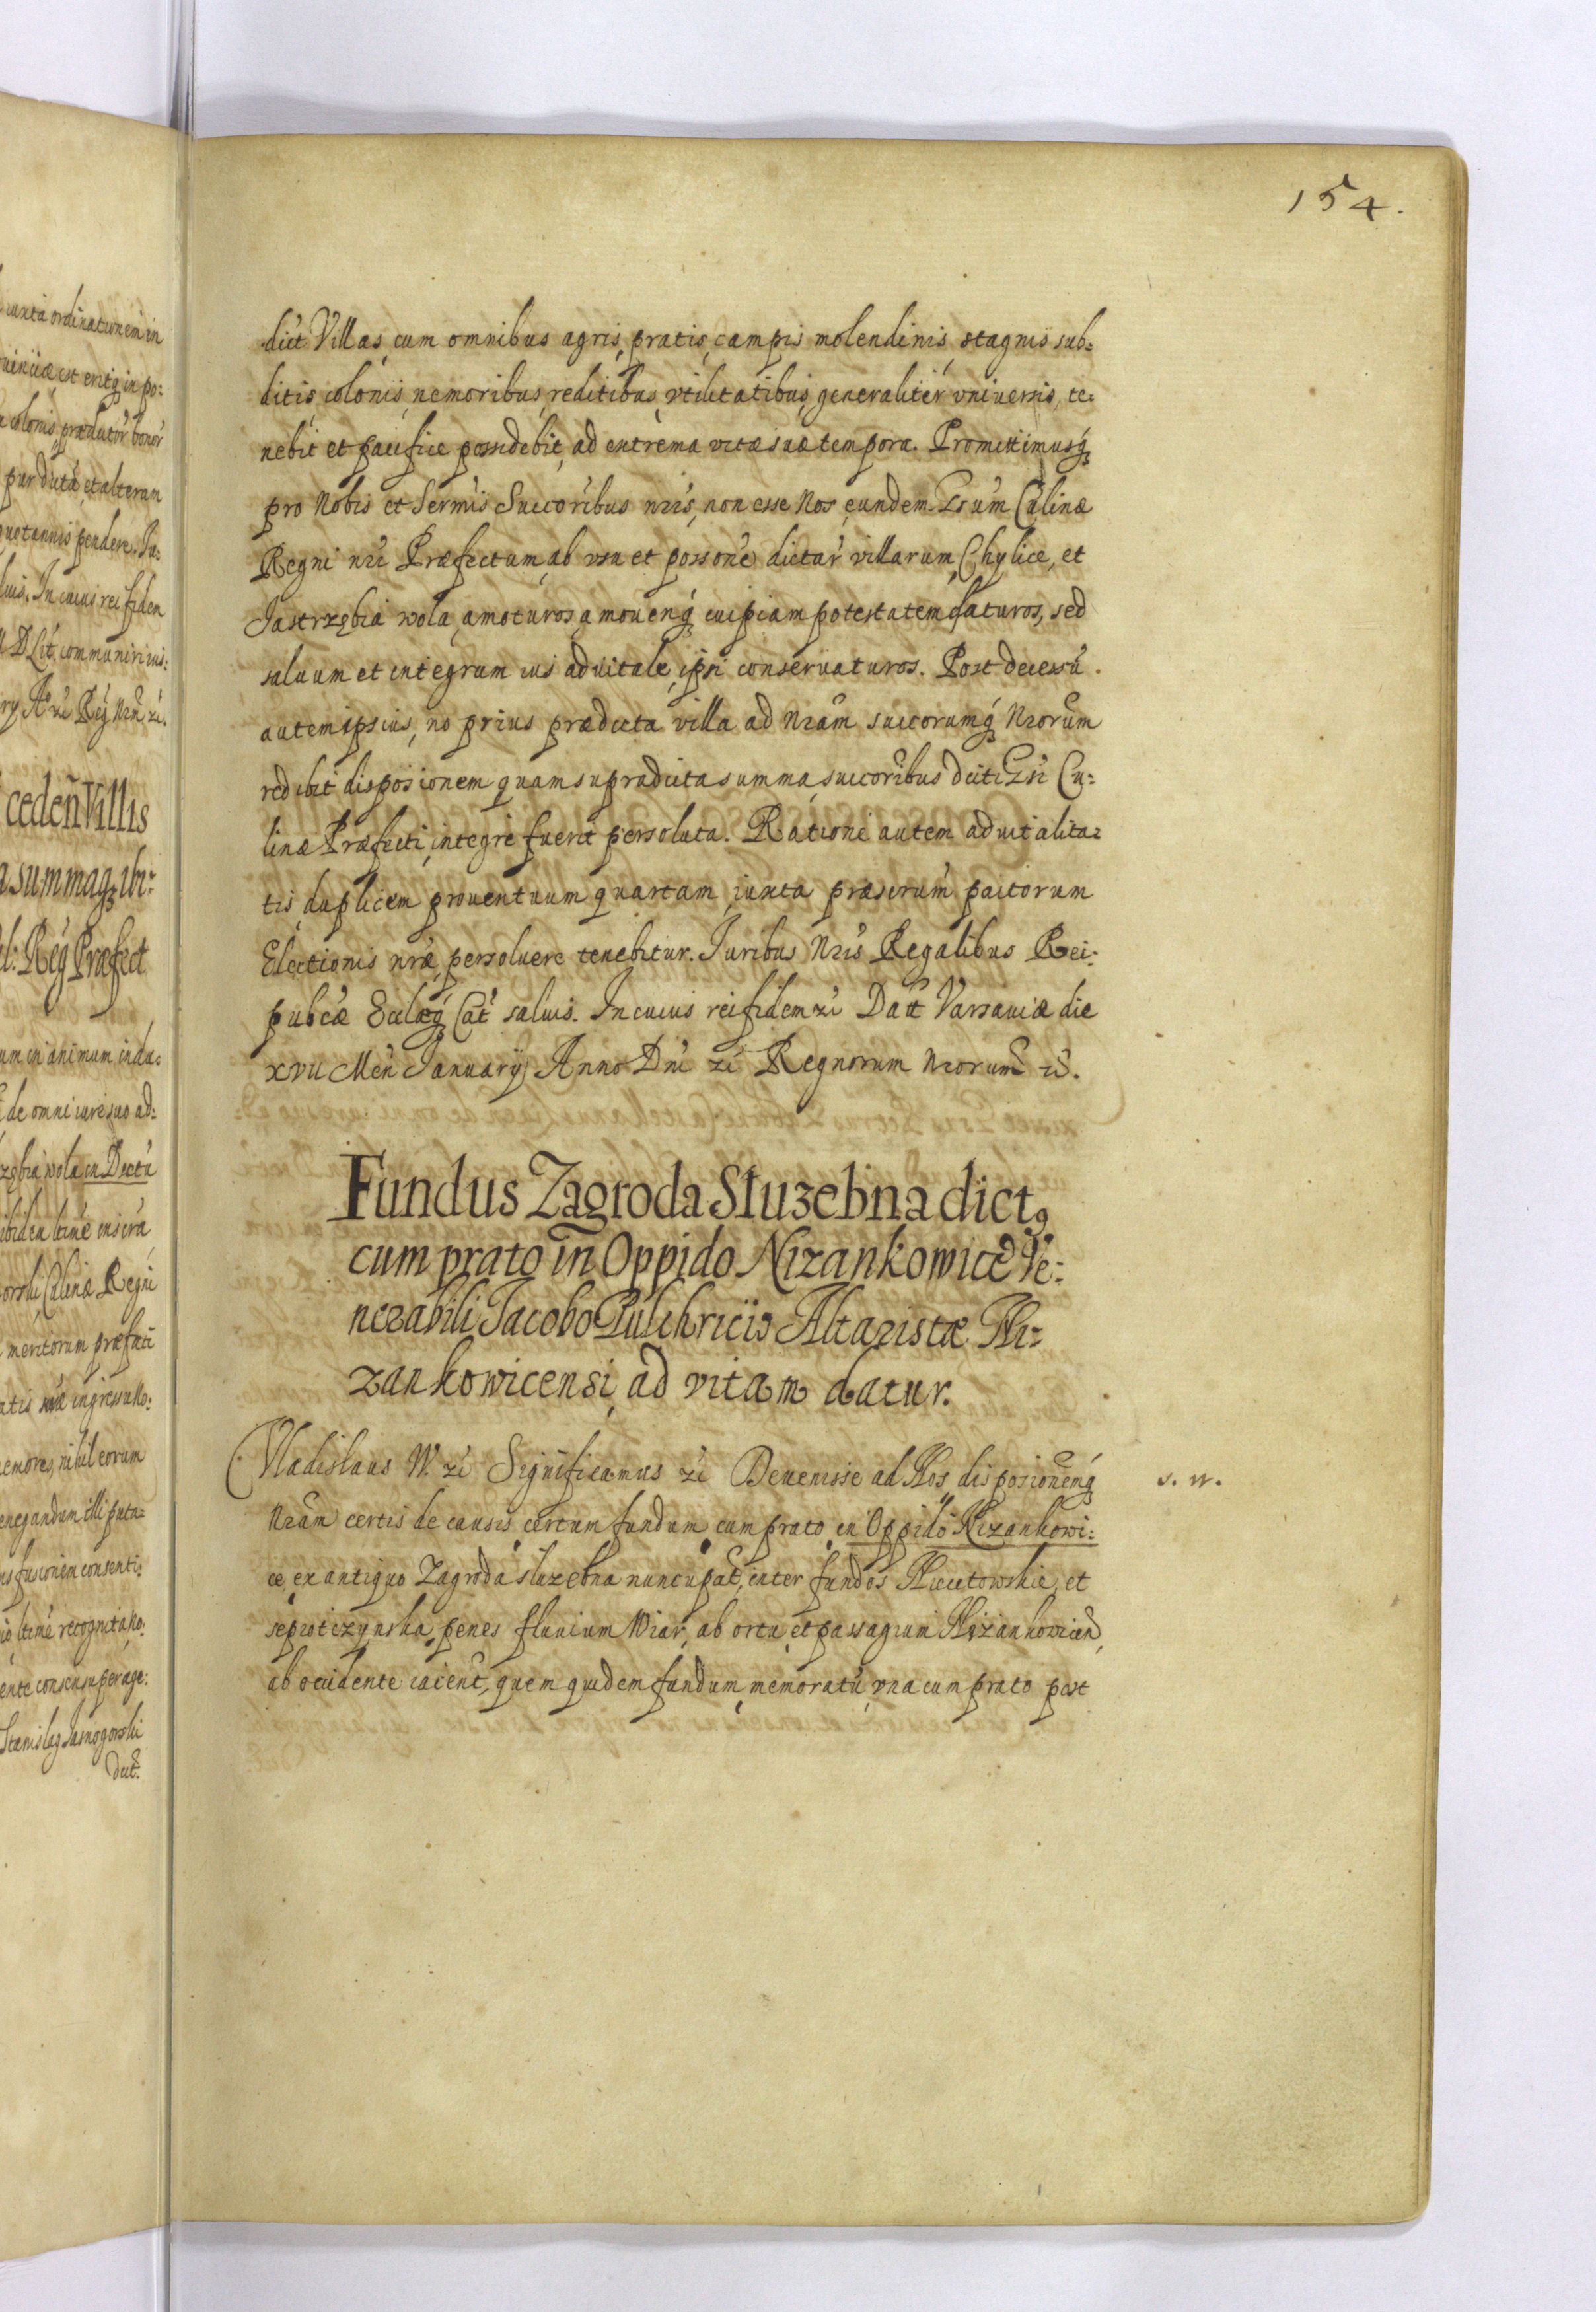 154.
dict Villas, cum omnibus agris, pratis, campis molendinis, stagnis sub:
ditis, colonis, nemoribus, reditibus, vtilitatibus, generaliter vniuersis, te:
nebit et pacifice possidebit, ad extrema vitæ suæ tempora. Promittimusq́
pro Nobis et Sermis Succoribus nris, non esse Nos, eundem Gsum Culinæ
Regni nri Præfectum, ab vsu et possone dictar villarum, Chylice, et
Jastrzębia wola, amoturos, amouenq́ cuipiam potestatem daturos, sed
saluum et integrum ius aduitale, ipsi conseruaturos. Post decessu
autem ipsius, no prius prædicta villa ad Nram succorumq́ Nrorum
redibit disposionem quam supradicta summa, succoribus dicti Gsi Cu:
linæ Præfecti, integre fuerit persoluta. Ratione autem aduitalita:
tis, duplicem prouentuum quartam, iuxta præscrum pactorum
Electionis nræ, persoluere tenebitur. Juribus Nris Regalibus Rei:
pubcæ Ecclæq́ Cat saluis. In cuius rei fidem zi Datt Varsauiæ die
XVII Men January Anno Dni zi Regnorum Nrorum zi.
Fundus Zagroda Słuzebna dictq
cum prato in Oppido Nizankowice Ve:
nerabili Jacobo Pulchricijs Altaristæ Ni:
zankowicensi, ad vitam datur.
Vladislaus W. zi Significamus zi Deuenisse ad Nos, disposionemq́
s. w.
Nram certis de causis, certum fundum, cum prato, in Oppido Nizankowi:
ce ex antiquo Zagroda słuzebna nuncupat, inter fundos et
penes fluuium Wiar, ab ortu, et passagium Nizankowicen,
ab occidente iacent, quem quidem fundum, memoratu, vna cum prato post